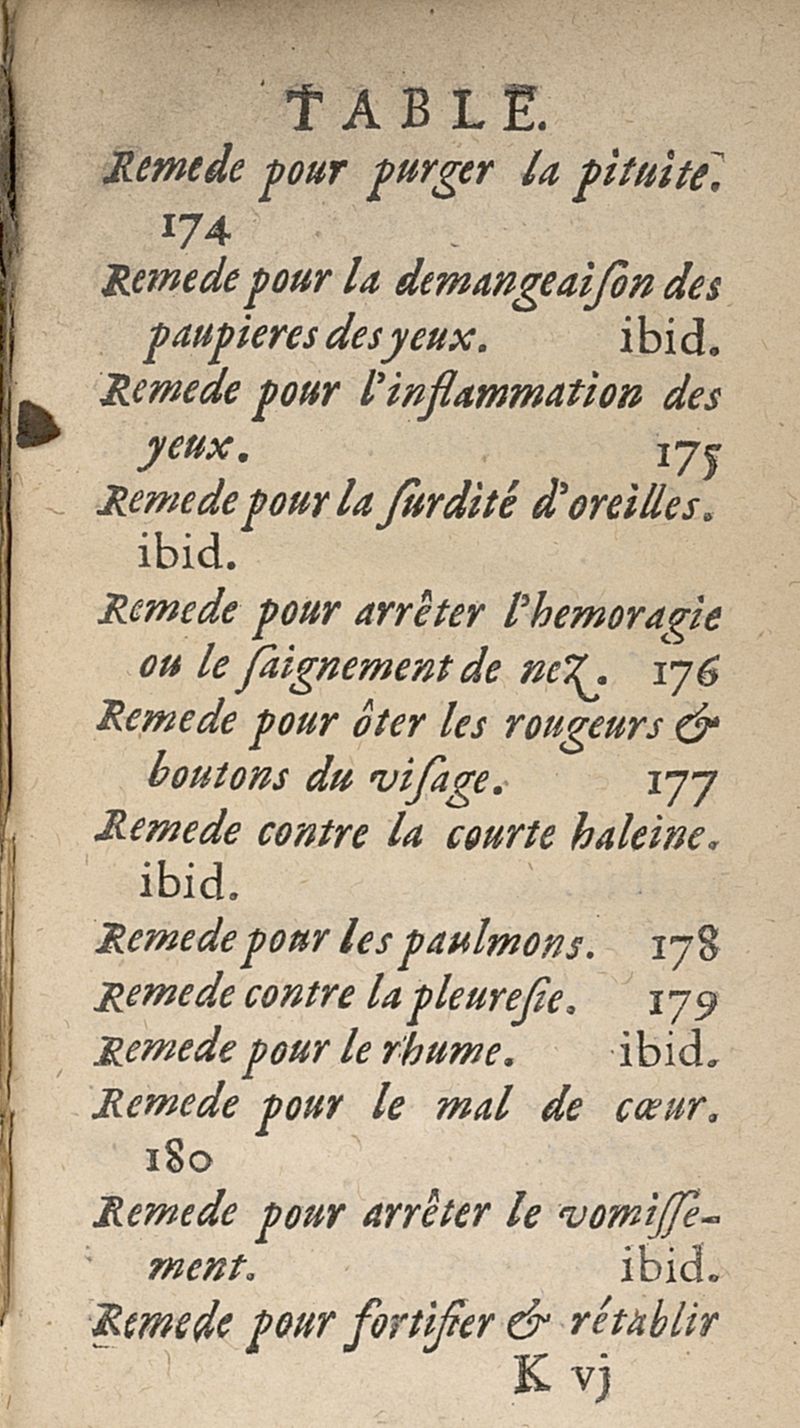 TABLE.
Remede pour purger la pituite.
174
Remede pour la demangeaiſon des
paupieres des yeux. ibid.
Remede pour l'inflammation des
yeux. 175
Remede pour la ſurdité d'oreilles.
ibid.
Remede pour arrêter l'hemoragie
ou le ſaignement de nez. 176
Remede pour ôter les rougeurs &
boutons du viſage. 177
Remede contre la courte haleine.
ibid.
Remede pour les paulmons. 178
Remede contre la pleureſie. 179
Remede pour le rhume. ibid.
Remede pour le mal de cœur.
180
Remede pour arrêter le vomiſſe-
ment. ibid.
Remede pour fortifier & rétablir
K vj